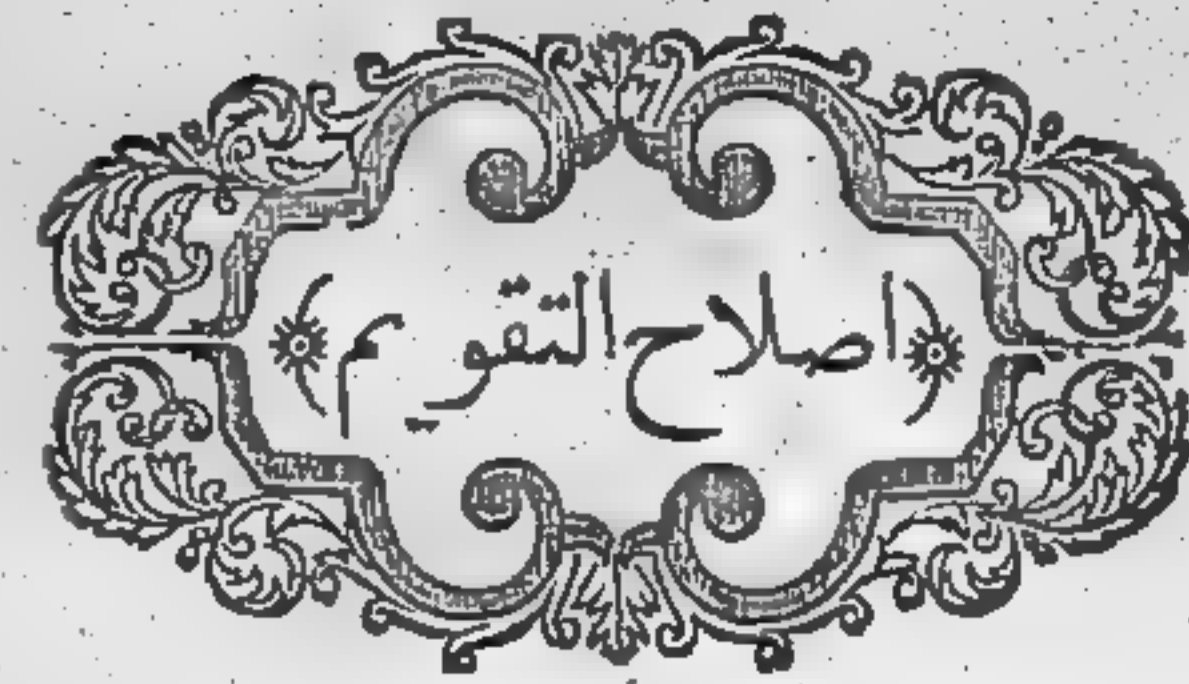 ﴿اصلاح التقويم﴾